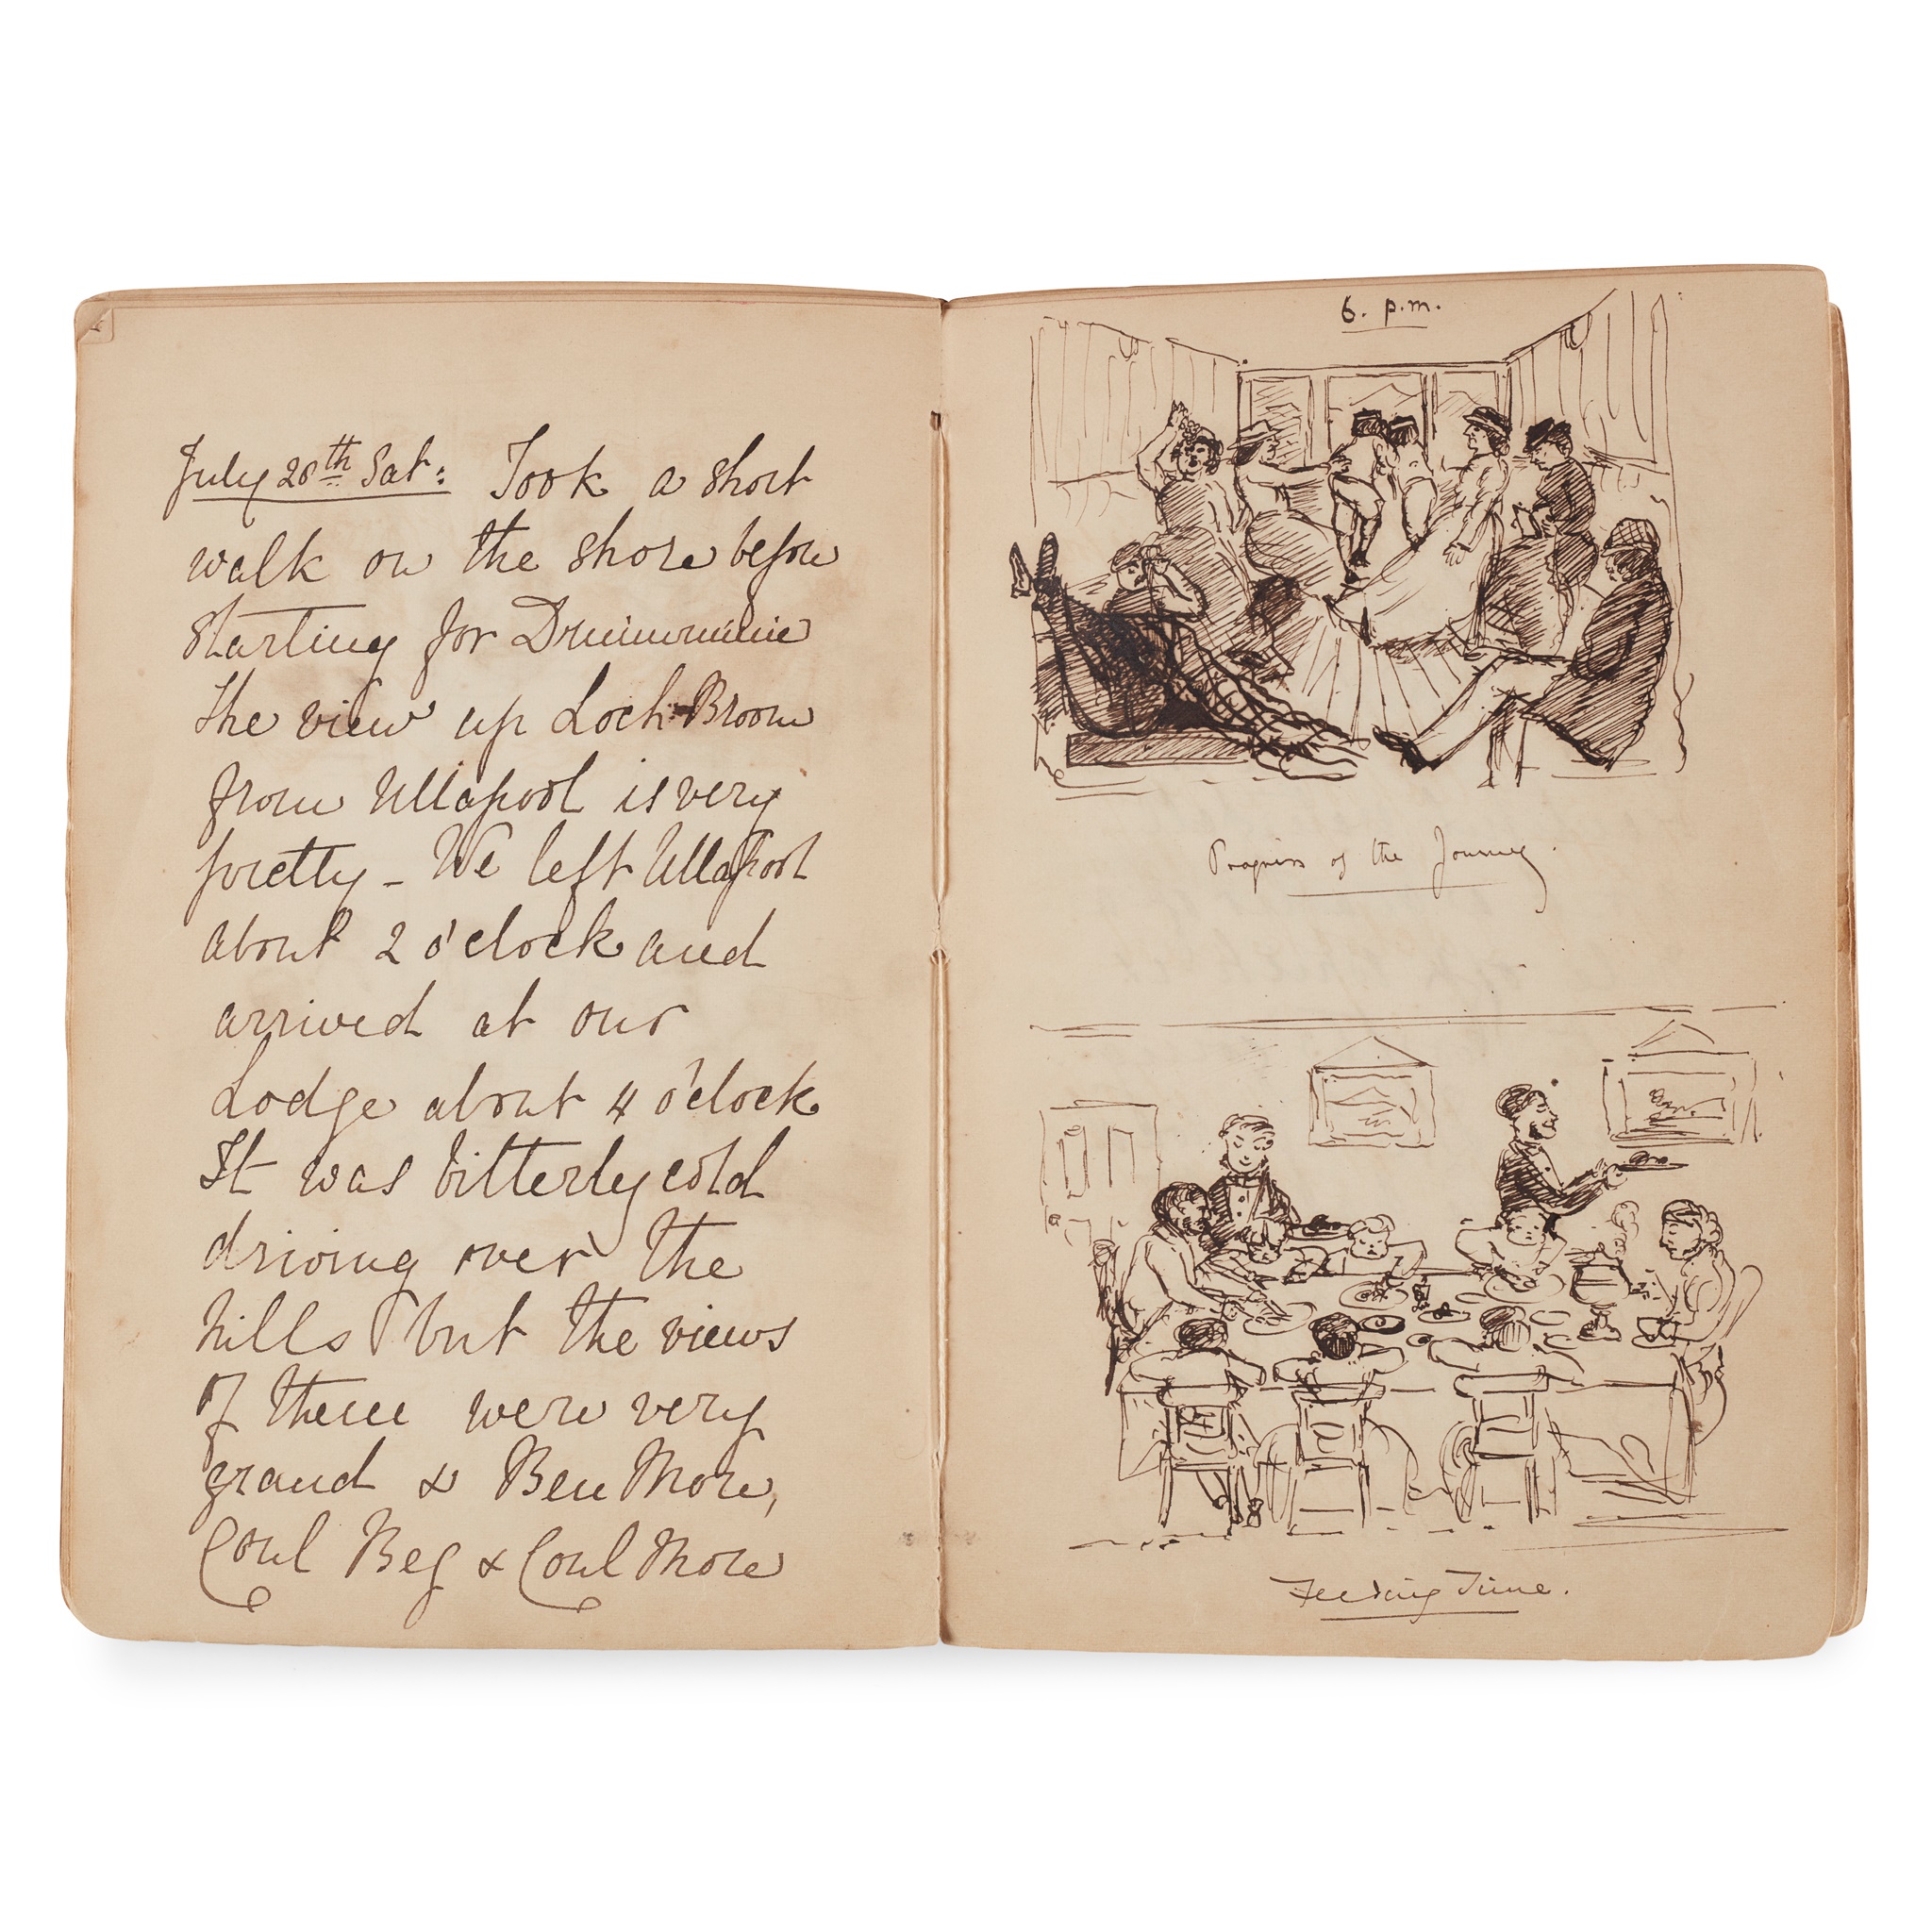 July 28th Sat: Took a short
walk on the shore before
starting for Drumrunie
The view up Loch Broom
from Ullapool is very
pretty - We left Ullapool
about 2 o'clock and
arrived at our
Lodge about 4 o'clock
It was bitterly cold
driving over the
hills but the views
of these were very
grand & Ben More,
Coul Beg & Coul More
6. p.m.
Progress of the Journey.
Feeding Time.